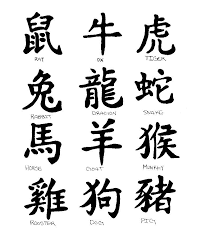 鼠 牛 虎
RAT OX TIGER
兔 龍 蛇
RABBIT DRAGON SNAKE
馬 羊 猴
HORSE GOAT MONKEY
雞 狗 豬
ROOSTER DOG PIG